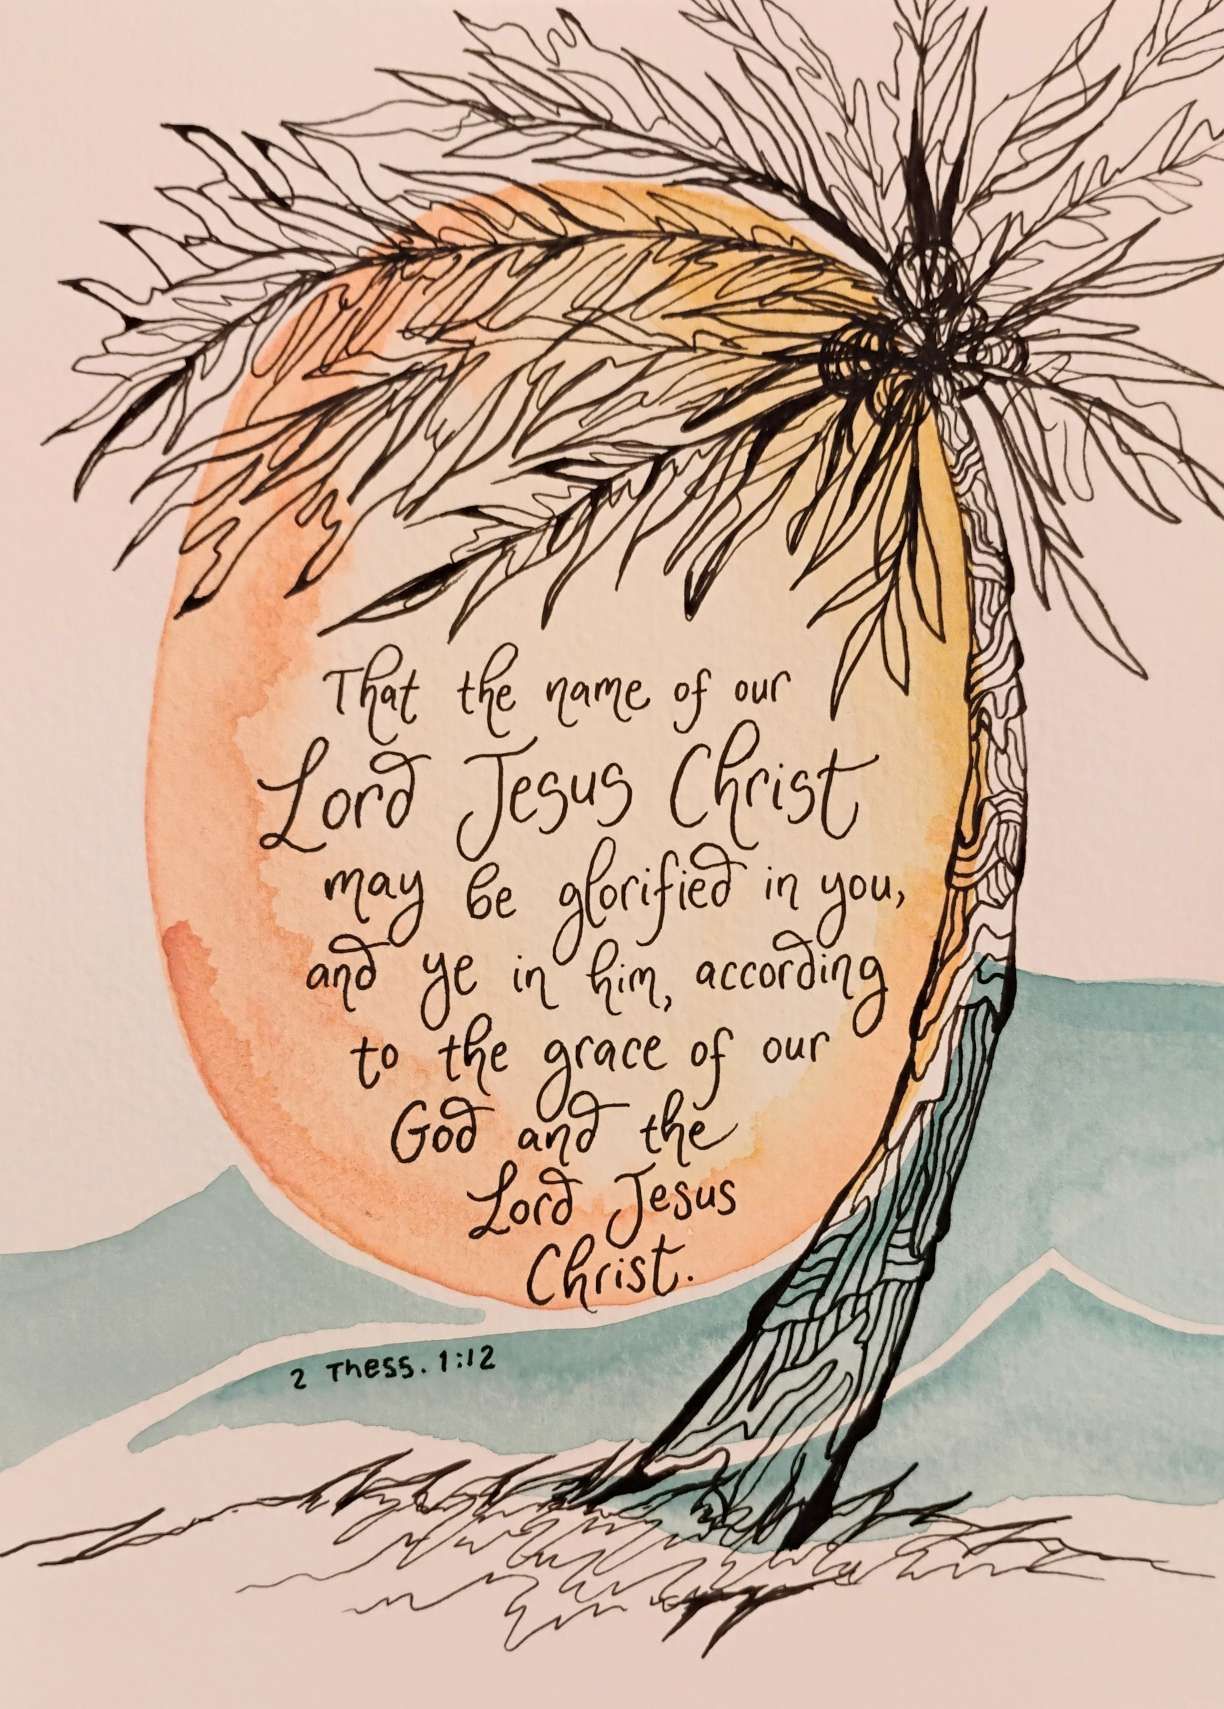 That the name of our
Lord Jesus Christ
may be glorified in you,
and ye in him, according
to the grace of our
God and the
Lord Jesus
Christ.
2 Thess. 1:12